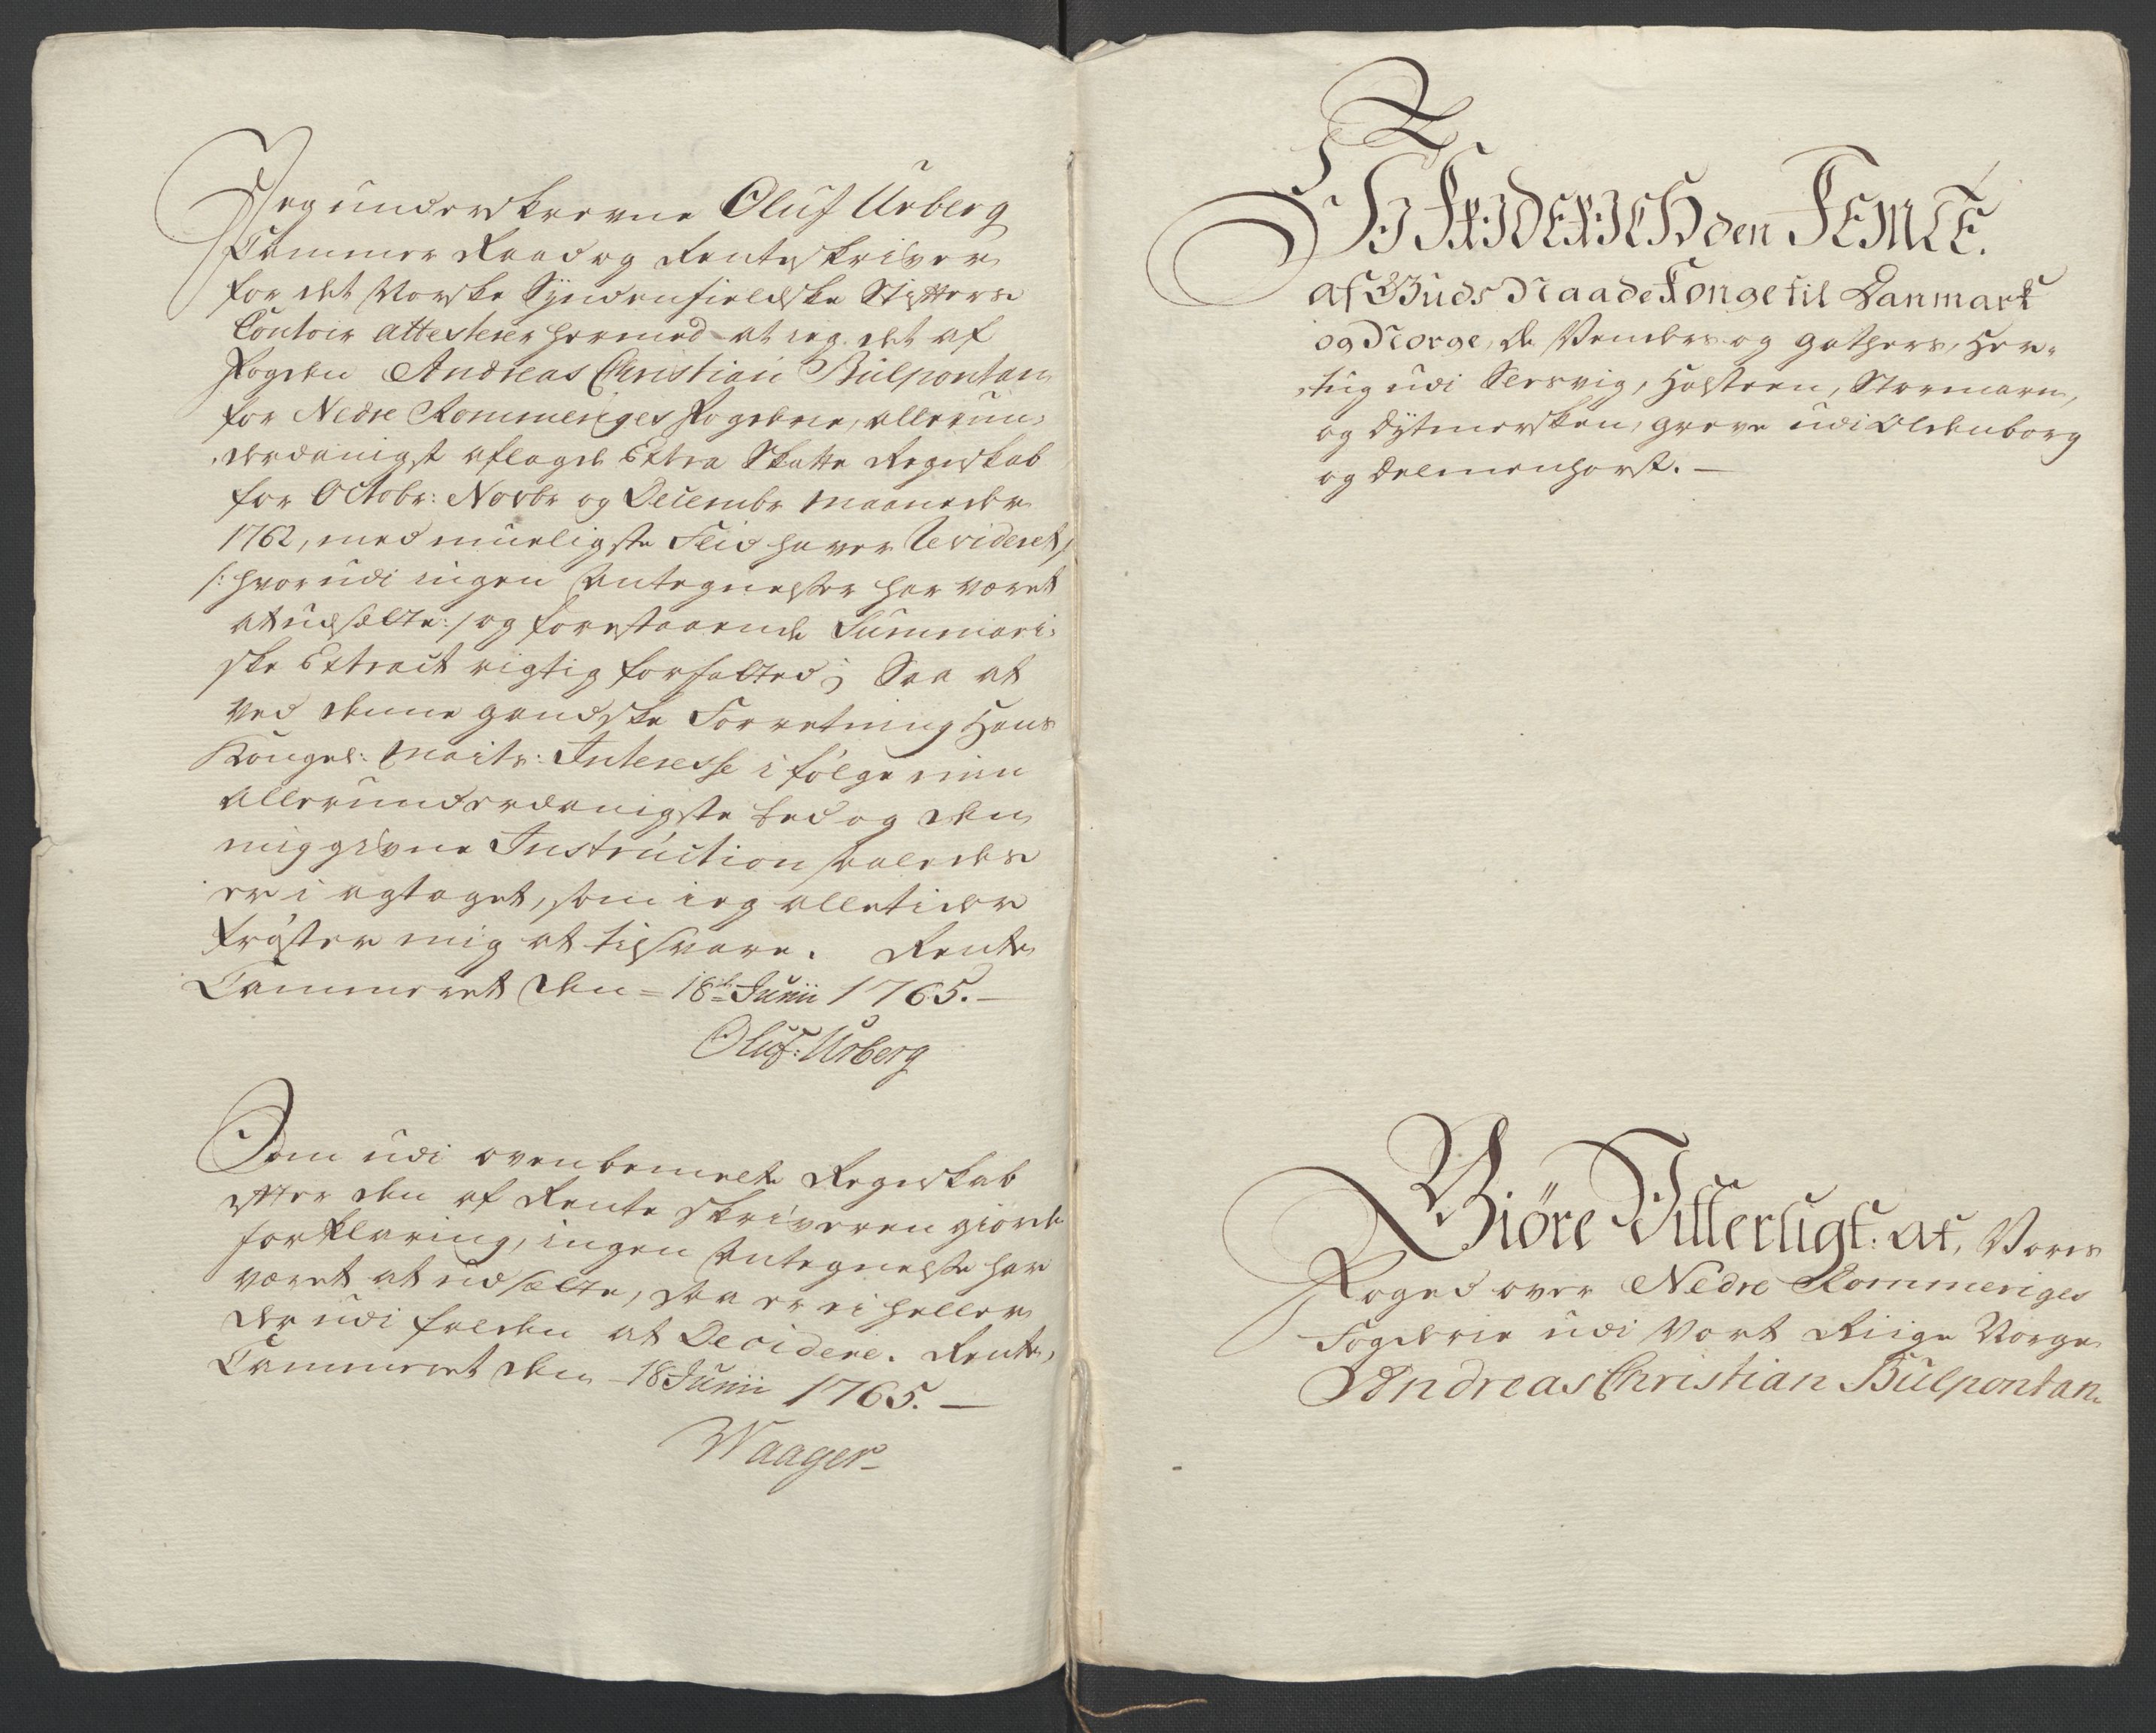 Jeg underskrevne Oluf Urberg
Cammer Raad og Renteskriver
for det Norske Syndenfieldske Stifters
Contoir attesterer hermed at jeg det af
Fogden Andreas Christian Bulpontan
for Nedre Rommeriges Fogderie, allerun-
derdanigst aflagde Extra Skatte Regnskab
for Octobr: Novbr og Decembr Maaneder
1762, med mueligste Fliid haver Revideret,
/: hvorudi ingen Antegnelser har været
at udsætte:/ og forestaaende Summari-
ske Extract rigtig forfatted; Saa at
ved denne gandske Forretning Hans
Kongel: Maits: Interesse i følge min
allerunderdanigste Eed og den
mig givne Instruction saaledes
er i agtaget, som jeg alletider
trøster mig at tilsvare. Rente
Cammeret den = 18de Junii 1765. —
Oluf: Urberg
Som udi ovenbemelte Regnskab
efter den af Rente Skriveren giorde
forklaring, ingen Antegnelse har
været at udsætte, saa er ei heller
der udi falden at Decidere. Rente
Cammeret den - 18 Junii 1765. —
Waager
Vi FRIDERICH den FEMTE.
af Guds Naade Konge til Danmark
og Norge, de Venders og Gothers, Her-
tug udi Slesvig, Holsteen, Stormarn,
og Dytmersken, Greve udi Oldenborg
og Delmenhorst. —
Giøre Vitterligt: at, Vores
Foged over Nedre Rommeriges
Fogderie udi Vort Riige Norge
Andreas Christian Bulpontan